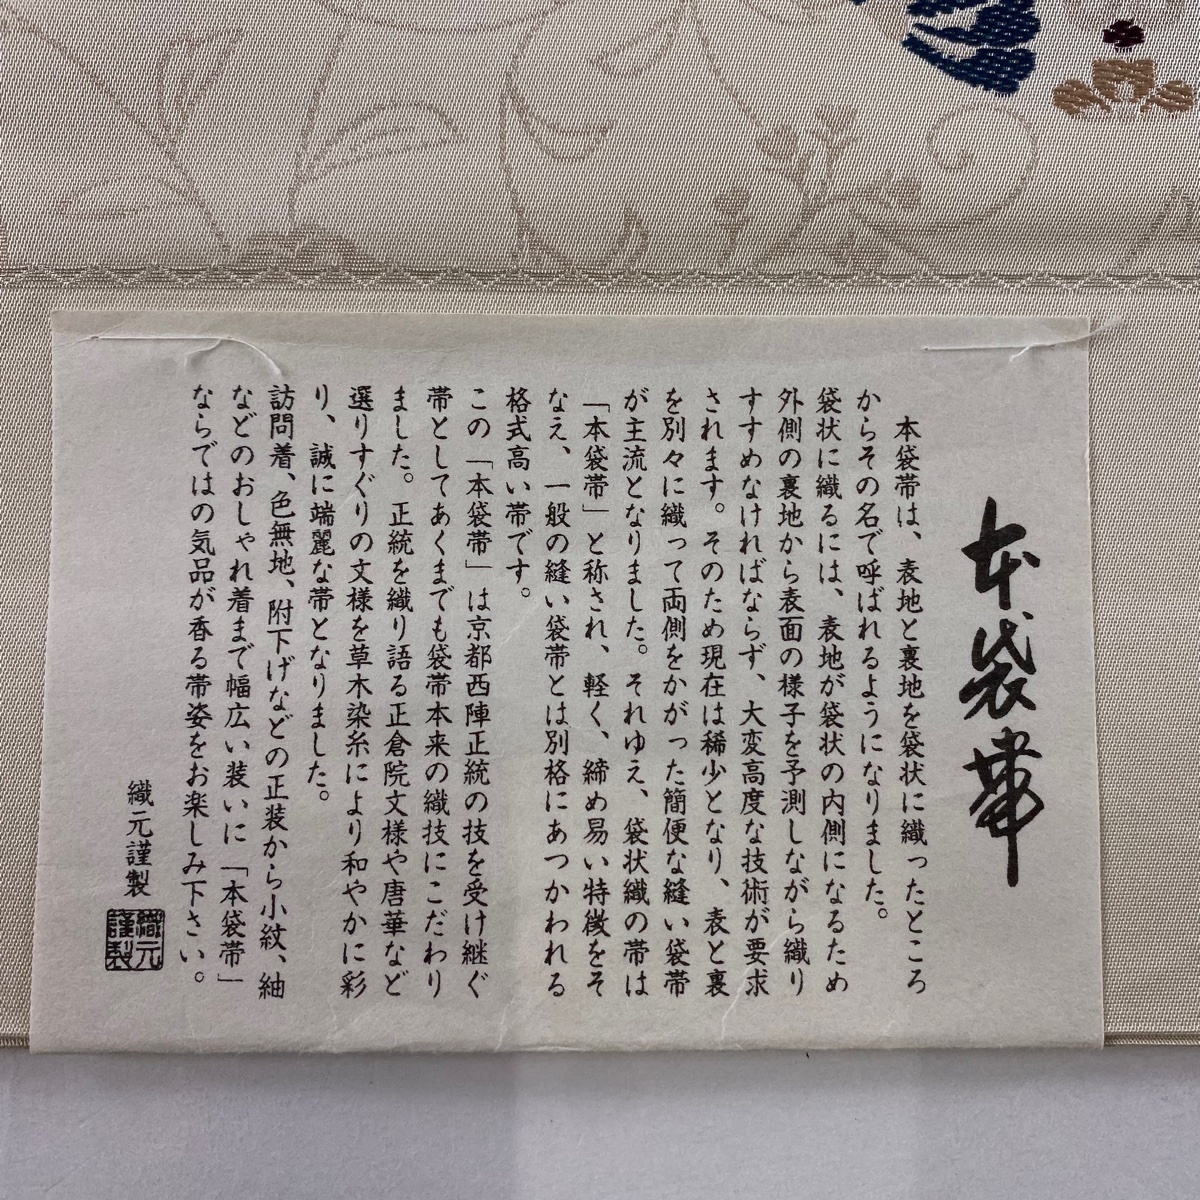 本袋帯
本袋帯は、表地と裏地を袋状に織ったところ
からその名で呼ばれるようになりました。
袋状に織るには、表地が袋状の内側になるため
外側の裏地から表面の様子を予測しながら織り
すすめなければならず、大変高度な技術が要求
されます。そのため現在は稀少となり、表と裏
を別々に織って両側をかがった簡便な縫い袋帯
が主流となりました。それゆえ、袋状織の帯は
「本袋帯」と称され、軽く、締め易い特徴をそ
なえ、一般の縫い袋帯とは別格にあつかわれる
格式高い帯です。
この「本袋帯」は京都西陣正統の技を受け継ぐ
帯としてあくまでも袋帯本来の織技にこだわり
ました。正統を織り語る正倉院文様や唐華など
選りすぐりの文様を草木染糸により和やかに彩
り、誠に端麗な帯となりました。
訪問着、色無地、附下げなどの正装から小紋、紬
などのおしゃれ着まで幅広い装いに「本袋帯」
ならではの気品が香る帯姿をお楽しみ下さい。
織元謹製
織元
謹製